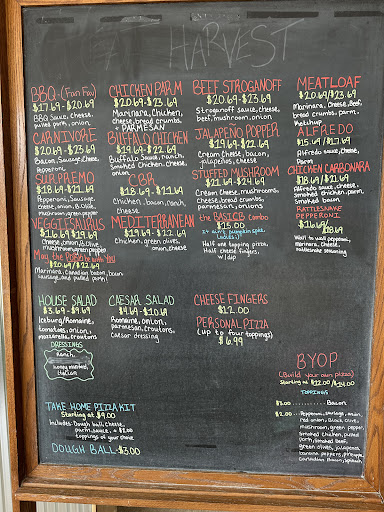 HARVEST
BBQ - (Fan Fav)
$17.69 - $20.69
BBQ Sauce, cheese,
pulled pork, onion
CARNIVORE
$20.69 - $23.69
Bacon, Sausage, Cheese,
Pepperoni
SUPREMO
$18.69 - $21.69
Pepperoni, Sausage,
Cheese, onion, B.Olive,
mushroom, green pepper
VEGGIESAURUS
$16.69 $19.69
Cheese, onion, B.Olive,
mushroom, green pepper
May the be with You
$20.69 / $22.69
Marinara, canadian bacon, bacon
sausage, and pulled pork!
CHICKEN PARM
$20.69 - $23.69
Marinara, Chicken,
cheese, bread crumbs,
+ PARMESAN
BUFFALO CHICKEN
$19.69 - $21.69
Buffalo Sauce, ranch,
Smoked Chicken, Cheese,
onion
CBR
$18.69 - $21.69
Chicken, bacon, ranch,
cheese
MEDITERRANEAN
$19.69 - $22.69
Chicken, green olives,
onion, cheese
BEEF STROGANOFF
$20.69 - $23.69
Stroganoff sauce, cheese,
beef, mushroom, onion
JALAPEÑO POPPER
$19.69 - $22.69
Cream cheese, bacon,
jalapeños, cheese
STUFFED MUSHROOM
$21.69 - $24.69
Cream cheese, mushrooms,
cheese, bread crumbs,
parmesan, onions
the BASICB Combo
$15.00
It ain't pumpkin spice
Ladies!
Half one topping pizza,
Half cheese fingers,
w/dip
MEATLOAF
$20.69/$23.69
Marinara, Cheese, Beef,
bread crumbs, parm.
Ketchup
ALFREDO
$15.69 / $17.69
Alfredo sauce, cheese,
Parm
CHICKEN CARBONARA
$18.69 / $21.69
Alfredo sauce, cheese,
smoked chicken, parm,
Smoked bacon
RATTLESNAKE
PEPPERONI
$16.69 /
$18.69
Wall to wall pepperoni,
marinara, Cheese,
rattlesnake seasoning
HOUSE SALAD
$3.69 - $9.69
Iceburg/Romaine,
tomatoes, onion,
mozzarella, croutons
DRESSINGS
Ranch,
honey mustard,
italian
CAESAR SALAD
$4.69 - $10.69
Romaine, onion,
parmesan, croutons,
Caesar dressing
CHEESE FINGERS
$12.00
PERSONAL PIZZA
(up to four toppings)
$6.99
TAKE HOME PIZZA KIT
Starting at $9.00
Includes: Dough ball, cheese,
parm, sauce, + $2.00
toppings of your choice
DOUGH BALL - $3.00
BYOP
(Build your own pizza)
Starting at $12.00/$14.00
TOPPINGS
$3.00 ......... Bacon
$2.00 ...... Pepperoni, sausage, onion,
red onion, black olive,
mushroom, green pepper,
smoked chicken, pulled
pork, smoked beef,
green olives, jalapenos,
banana peppers, pineapple,
canadian bacon, spinach